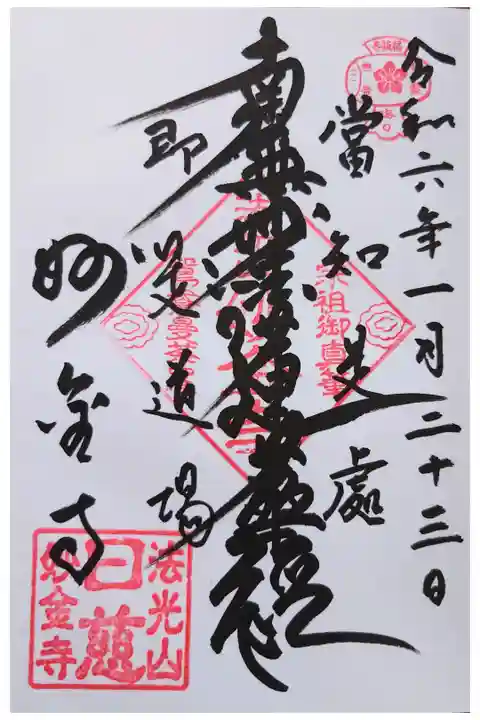 令和六年一月二十三日
當知是處
南無妙法蓮華経
即是道場
妙金寺
宗祖御真筆
法光山
日慈
妙金寺